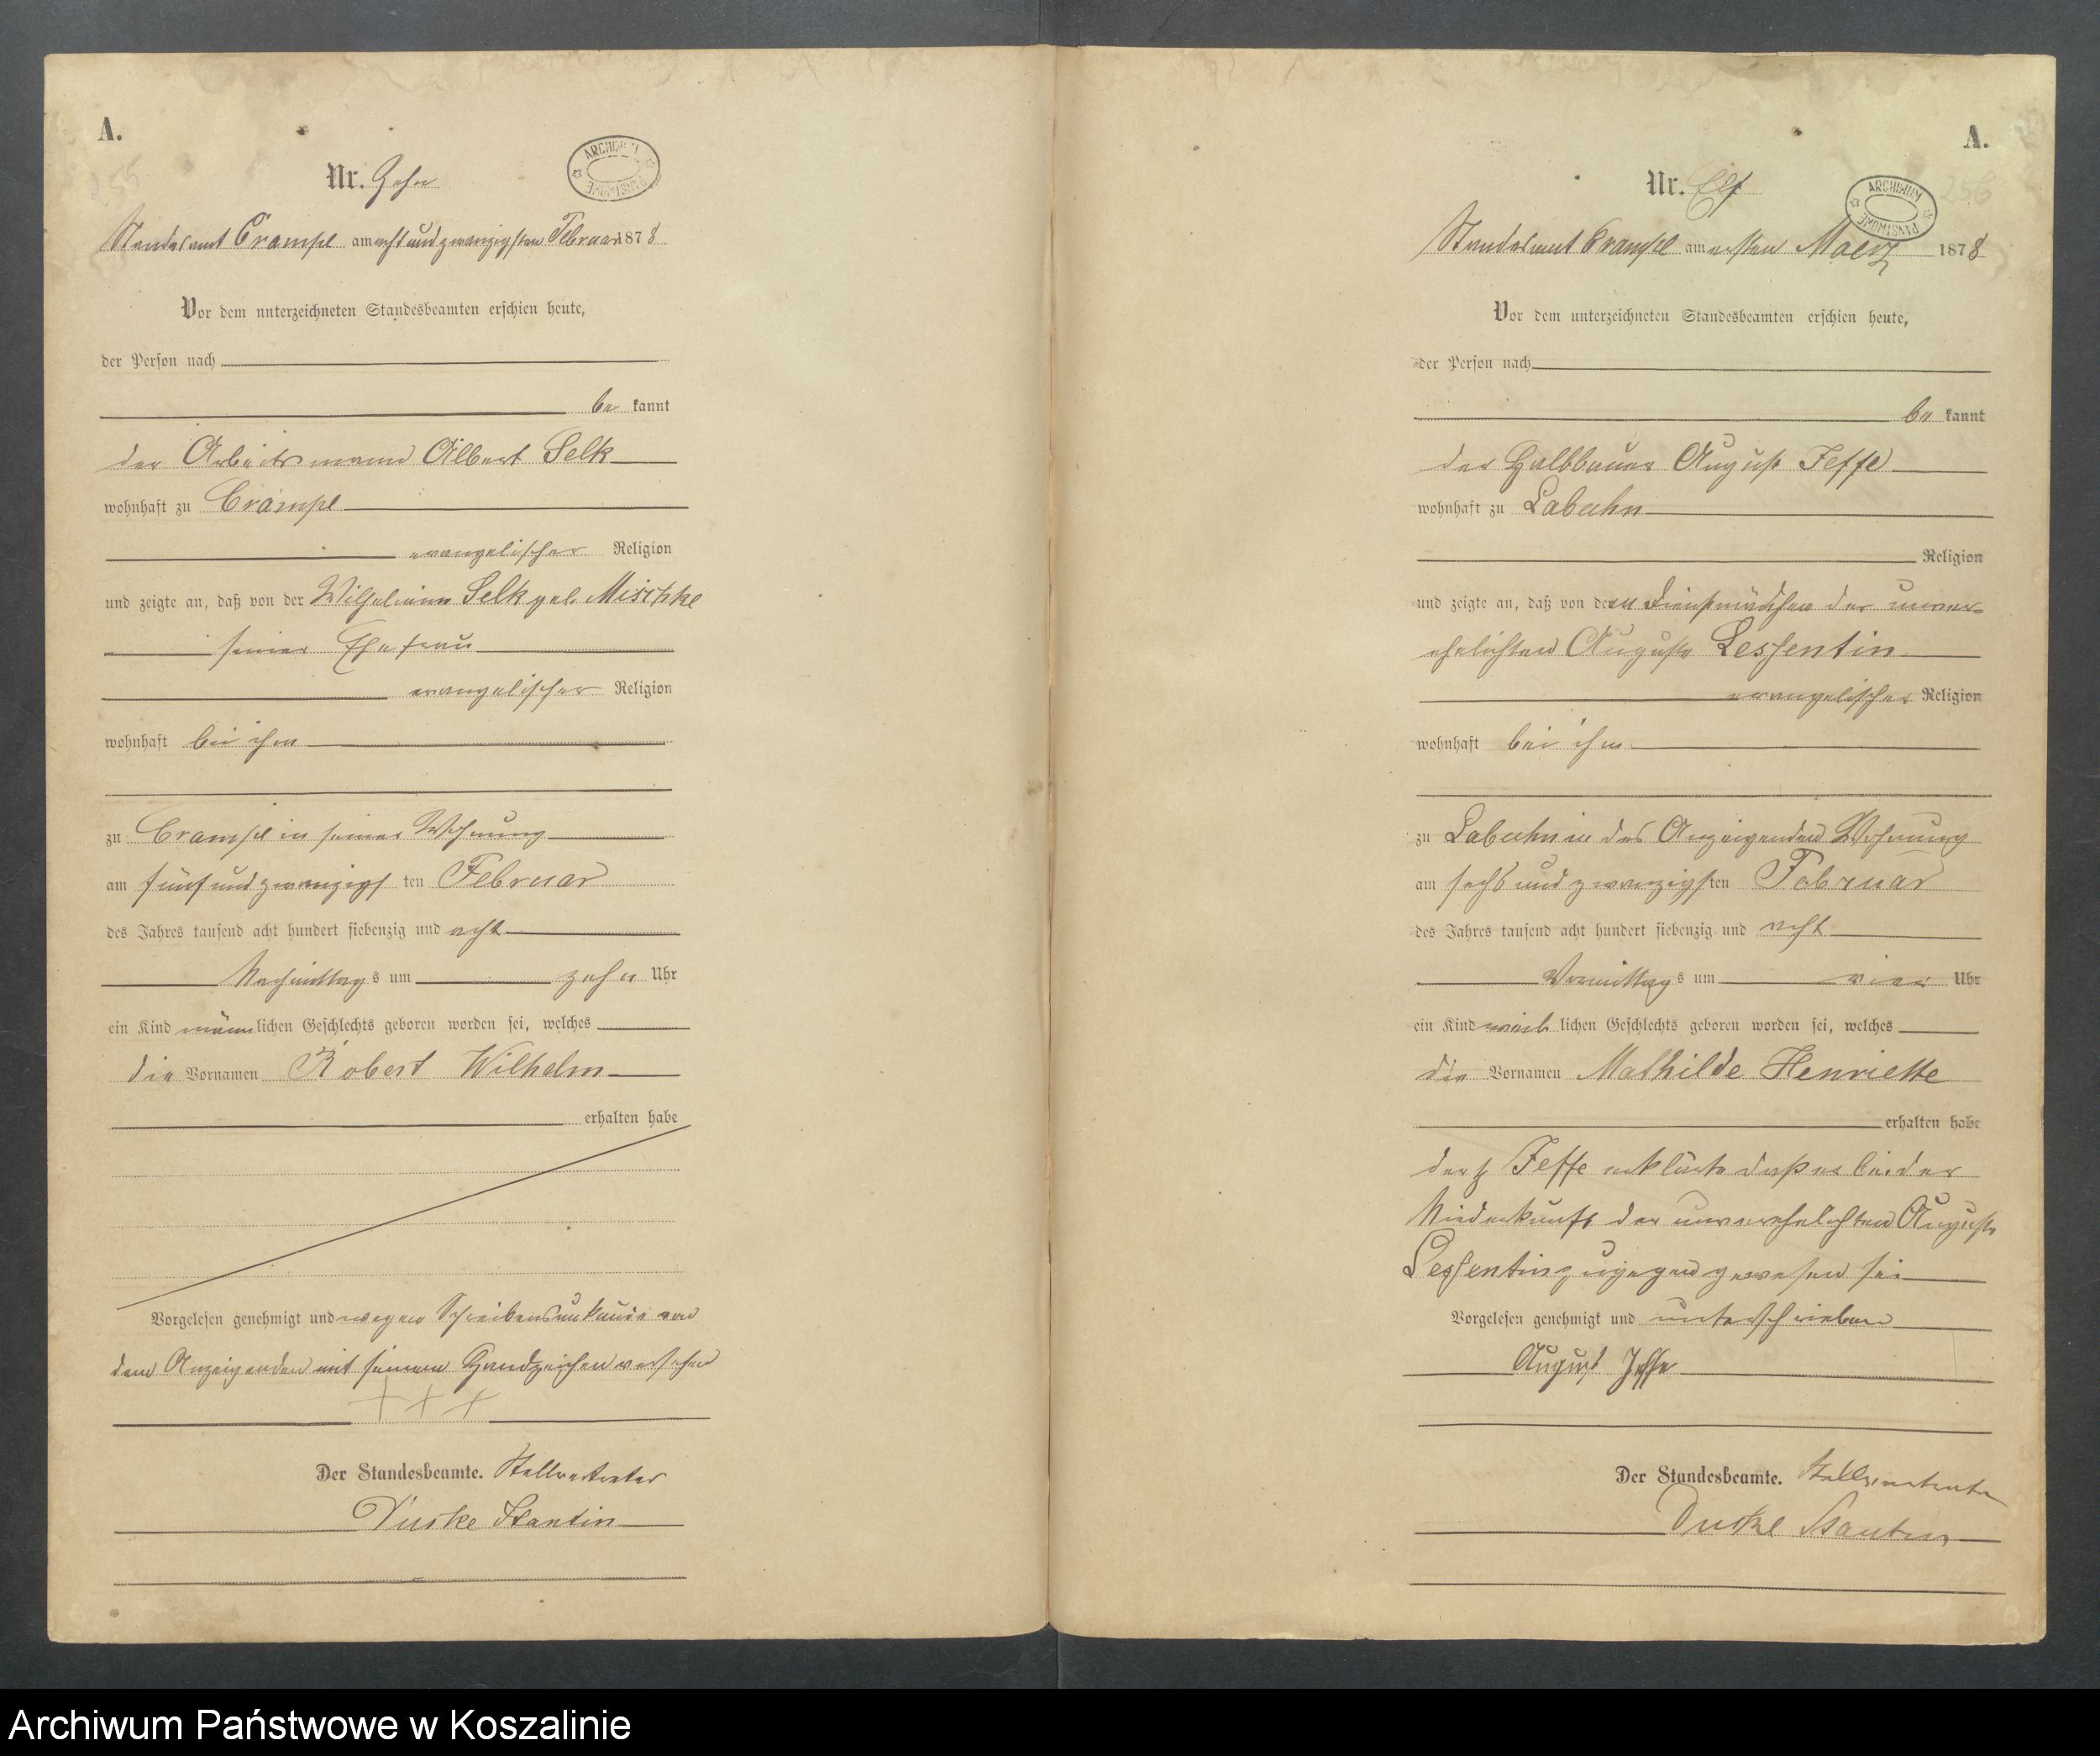 A.
Nr. Zehn
ARCHIWUM PAŃSTWOWE
Standesamt Crampe am acht und zwanzigsten Februar 1878
Vor dem unterzeichneten Standesbeamten erschien heute,
der Person nach
be kannt
der Arbeitsmann Albert Selk
wohnhaft zu Crampe
evangelischer Religion
und zeigte an, daß von der Wilhelmine Selk geb. Mischke
seiner Ehefrau
evangelischer Religion
wohnhaft bei ihm
zu Crampe in seiner Wohnung
am fünf und zwanzigsten Februar
des Jahres tausend acht hundert siebenzig und acht
Nachmittags um zehn Uhr
ein Kind männlichen Geschlechts geboren worden sei, welches
die Vornamen Robert Wilhelm
erhalten habe
Vorgelesen genehmigt und wegen Schreibensunkunde von
dem Anzeigenden mit seinem Handzeichen versehen
+ + +
Der Standesbeamte. Stellvertreter
Duske
A.
Nr. Elf
256
ARCHIWUM PAŃSTWOWE
Standesamt Crampe am ersten Maerz 1878
Vor dem unterzeichneten Standesbeamten erschien heute,
der Person nach
be kannt
der Halbbauer August Jeffe
wohnhaft zu Labuhn
Religion
und zeigte an, daß von dem Dienstmädchen der unver-
ehelichten Auguste Lessentin
evangelischer Religion
wohnhaft bei ihm
zu Labuhn in des Anzeigenden Wohnung
am sechs und zwanzigsten Februar
des Jahres tausend acht hundert siebenzig und acht
Vormittags um vier Uhr
ein Kind weiblichen Geschlechts geboren worden sei, welches
die Vornamen Mathilde Henriette
erhalten habe
Jeffe erklärte daß er bei der
Niederkunft der unverehelichten Auguste
Lessentin zugegen gewesen sei
Vorgelesen genehmigt und unterschrieben
August Jeffe
Der Standesbeamte. Stellvertreter
Duske
Archiwum Państwowe w Koszalinie